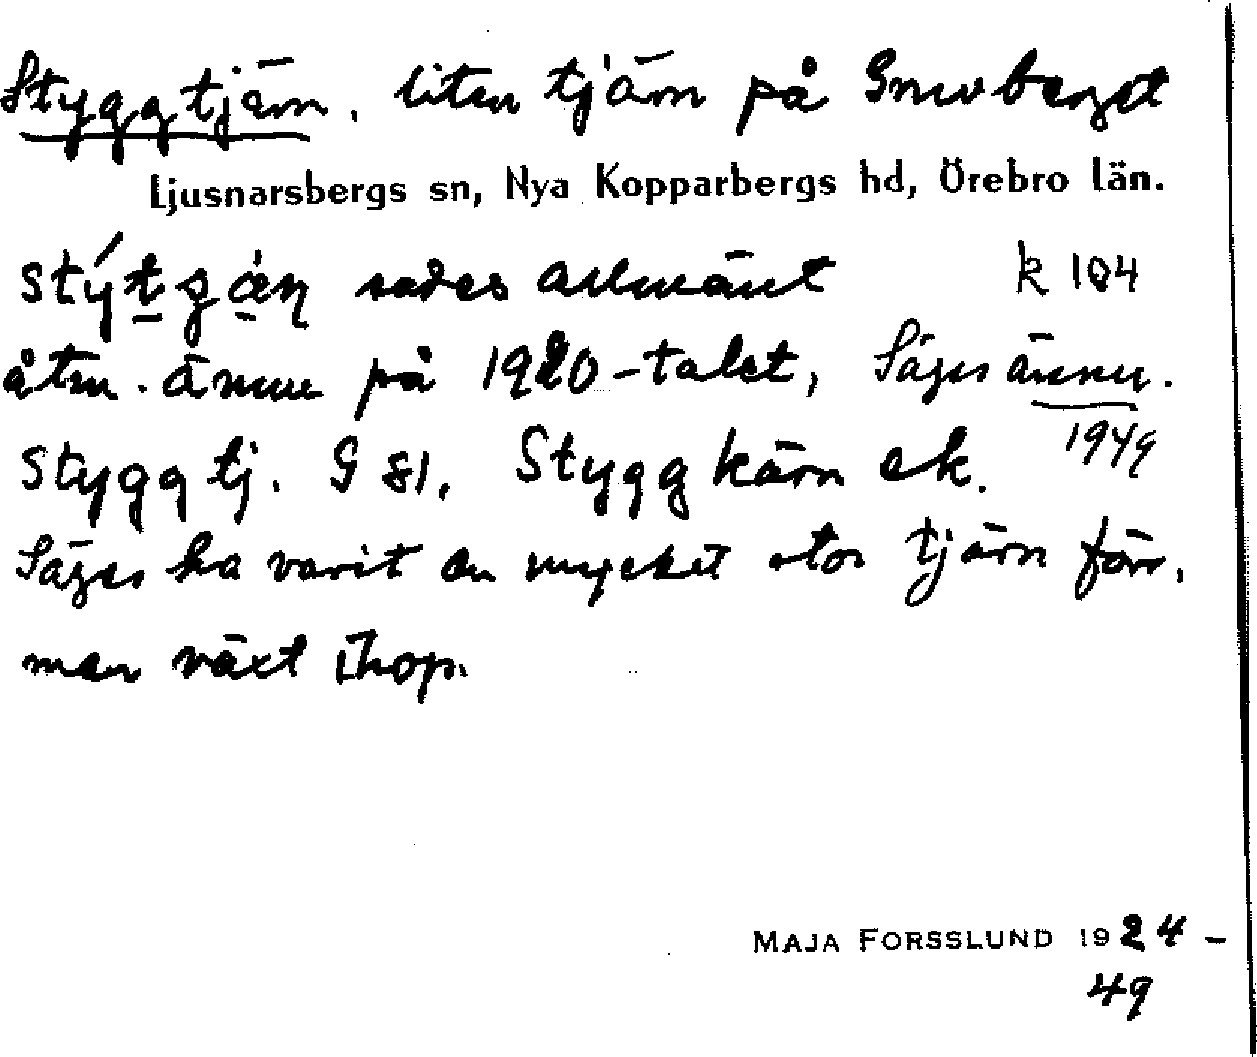 Styggtjärn. liten tjärn på Gruvberget
Ljusnarsbergs sn, Nya Kopparbergs hd, Örebro län.
sades allmänt k 104
åtm. ännu på 1920-talet, Säges ännu.
1949
Styggtj. G 81. Styggkärn ek.
Säges ha varit en mycket stor tjärn förr,
men växt ihop.
MAJA FORSSLUND 1924-
49